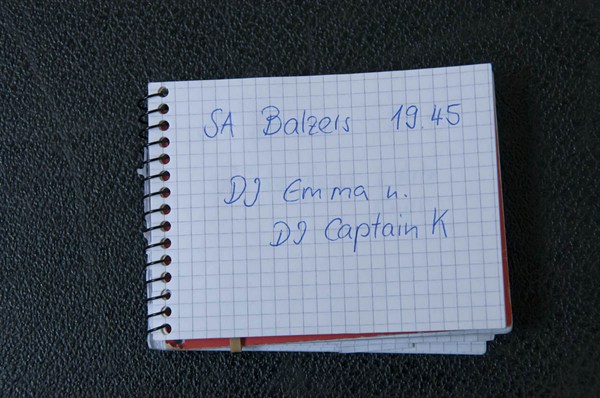 SA Balzers 19.45
DJ Emma u.
DJ Captain K